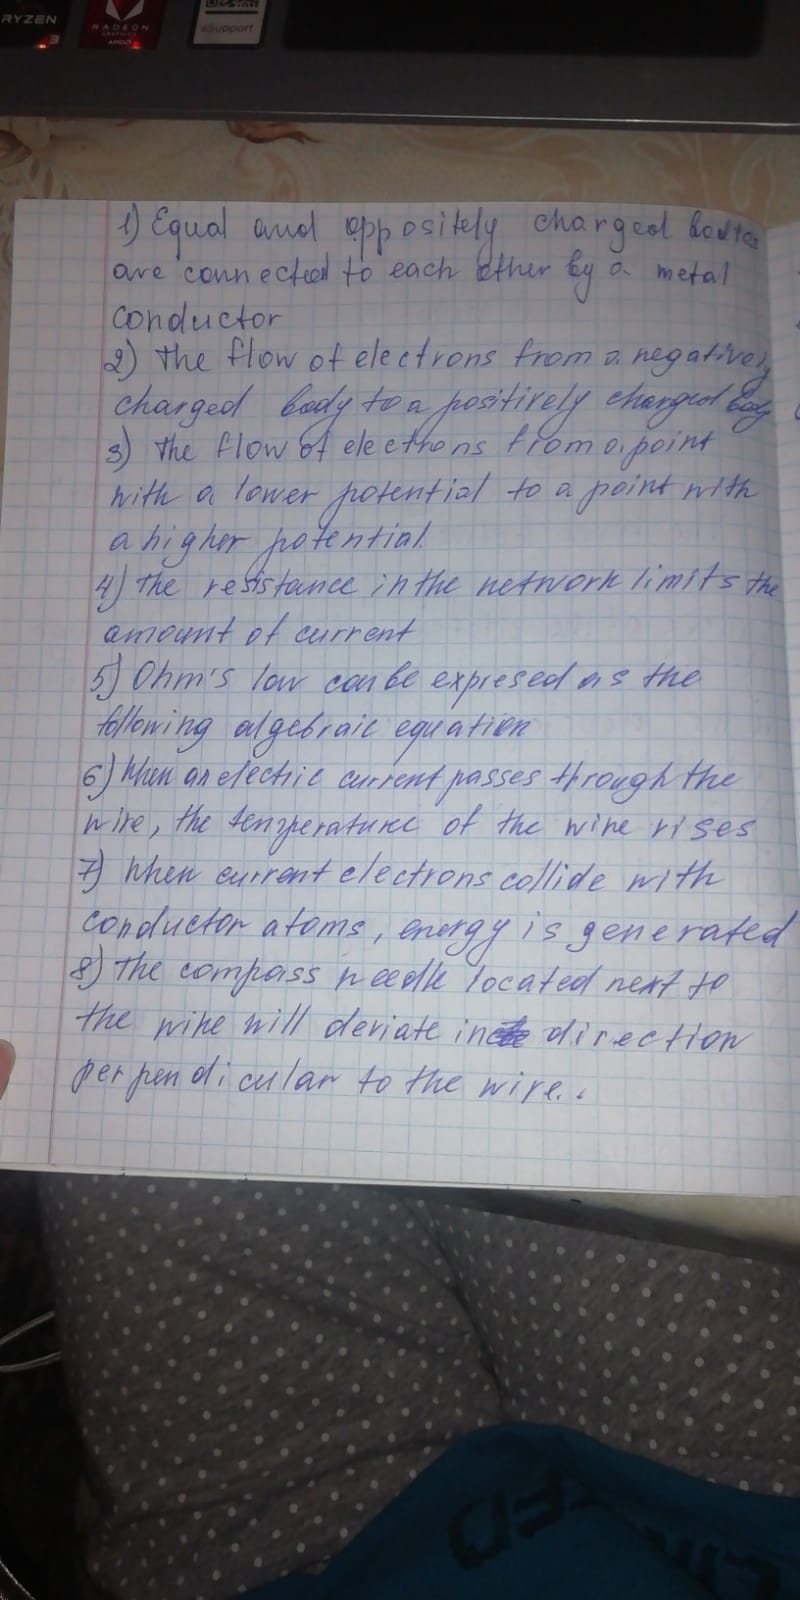 RYZEN
3
RADEON
GRAPHICS
AMD
eSupport
1) Equal and oppositely charged bodies
are connected to each other by a metal
conductor
2) The flow of electrons from a negatively
charged body to a positively charged body
3) The flow of electrons from a point
with a lower potential to a point with
a higher potential.
4) The resistance in the network limits the
amount of current
5) Ohm's law can be expresed as the
following algebraic equation
6) When an electric current passes through the
wire, the temperature of the wire rises
7) When current electrons collide with
conductor atoms, energy is generated
8) The compass needle located next to
the wire will deviate in direction
perpendicular to the wire..